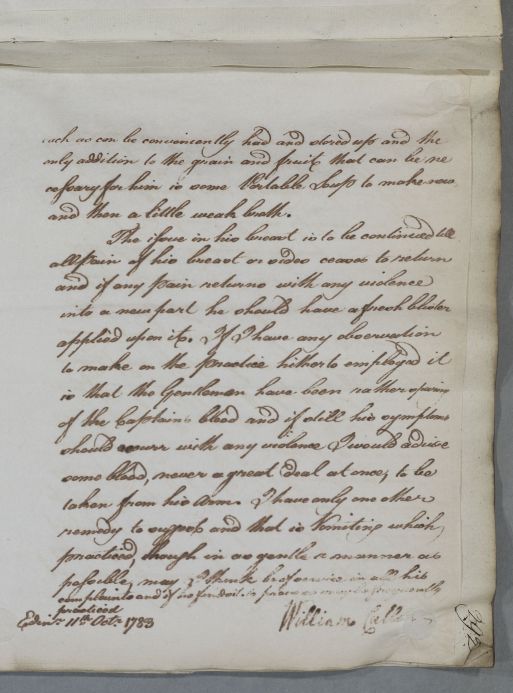 such as can be conveniently had and stored up and the
only addition to the grain and fruit that can be ne
cessary for him is some Portable Soup to make now
and then a little weak broth.
The issue in his breast is to be continued till
all pain of his breast or sides ceases to return
and if any pain returns with any violence
into a new part he should have a fresh blister
applied upon it. If I have any observation
to make on the practice hitherto employed it
is that the Gentlemen have been rather sparing
of the Captains blood and if still his symptoms
should recurr with any violence I would advise
some blood, never a great deal at once, to be
taken from his arm. I have only one other
remedy to suggest and that is Vomiting which,
practiced, though in as gentle a manner as
possible, may I think be of service in all his
complaints and if so found it may be frequently
practiced
Edinr. 11th. Octr. 1783 William Cullen
292